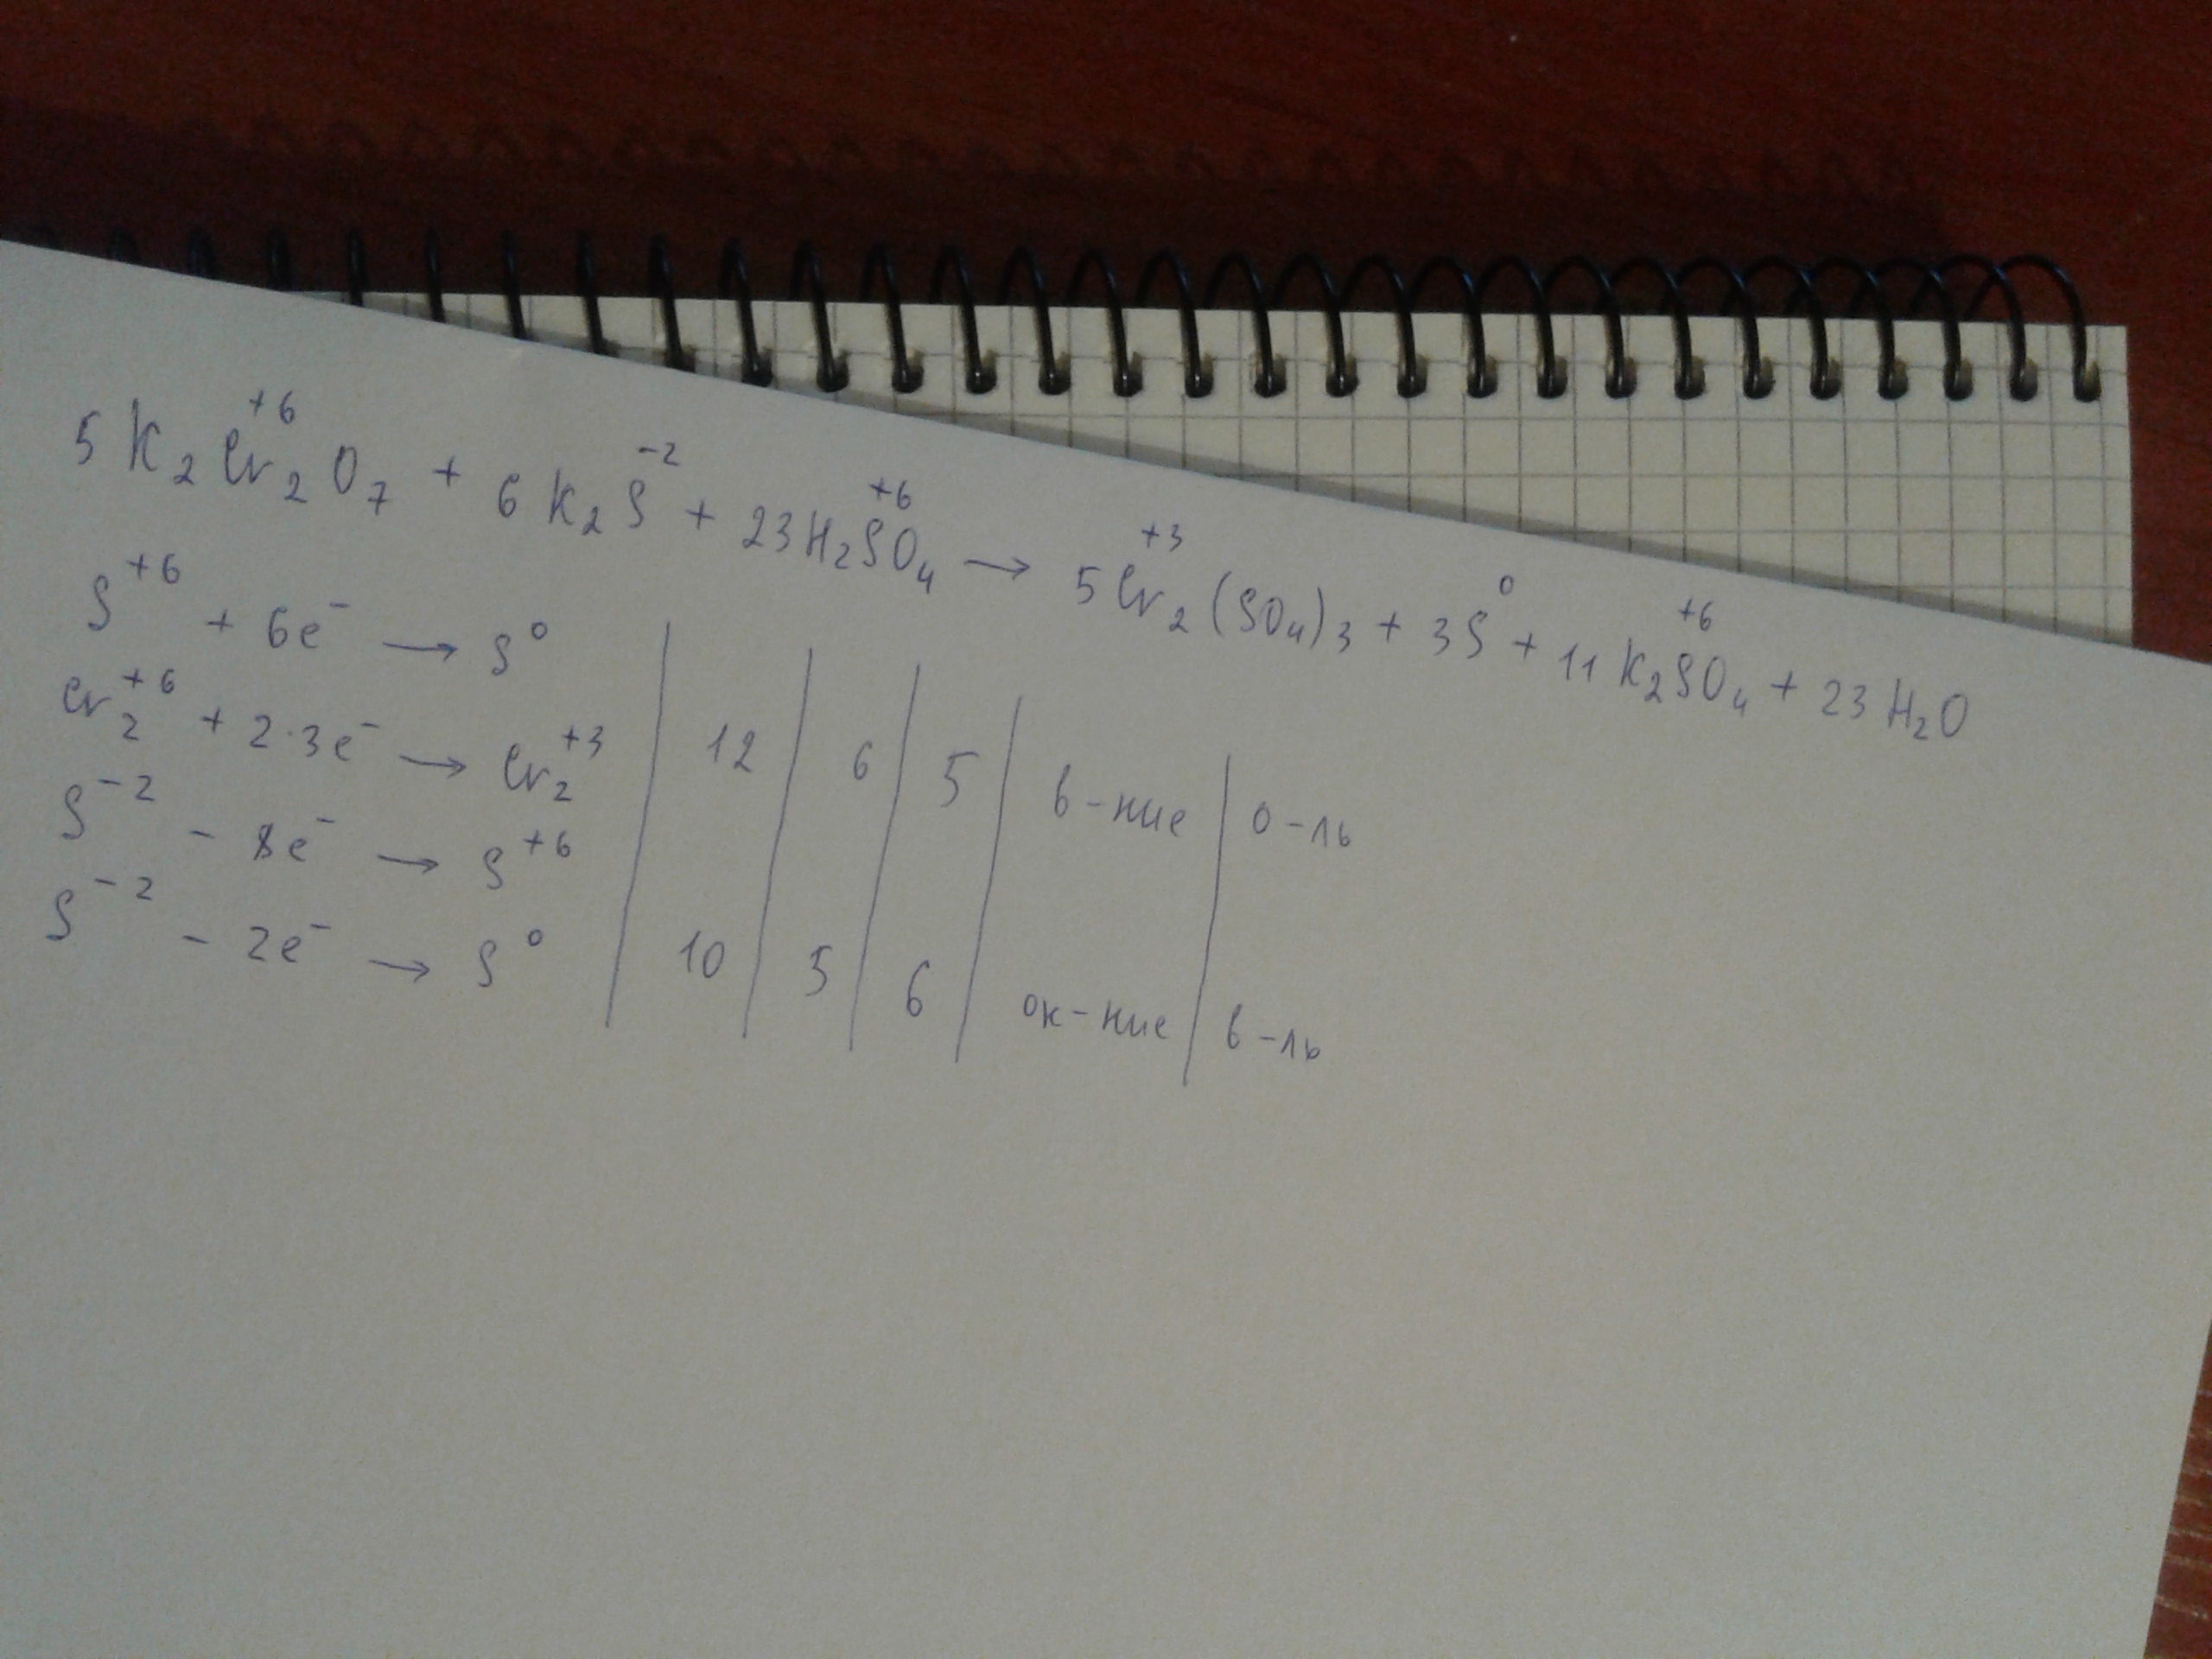 5 K₂Cr₂⁺⁶O₇ + 6 K₂S⁻² + 23 H₂S⁺⁶O₄ → 5 Cr₂⁺³(SO₄)₃ + 3 S⁰ + 11 K₂S⁺⁶O₄ + 23 H₂O
S⁺⁶ + 6e⁻ → S⁰
Cr₂⁺⁶ + 2·3e⁻ → Cr₂⁺³ | 12 | 6 | 5 | в-ние | о-ль
S⁻² - 8e⁻ → S⁺⁶
S⁻² - 2e⁻ → S⁰ | 10 | 5 | 6 | ок-ние | в-ль